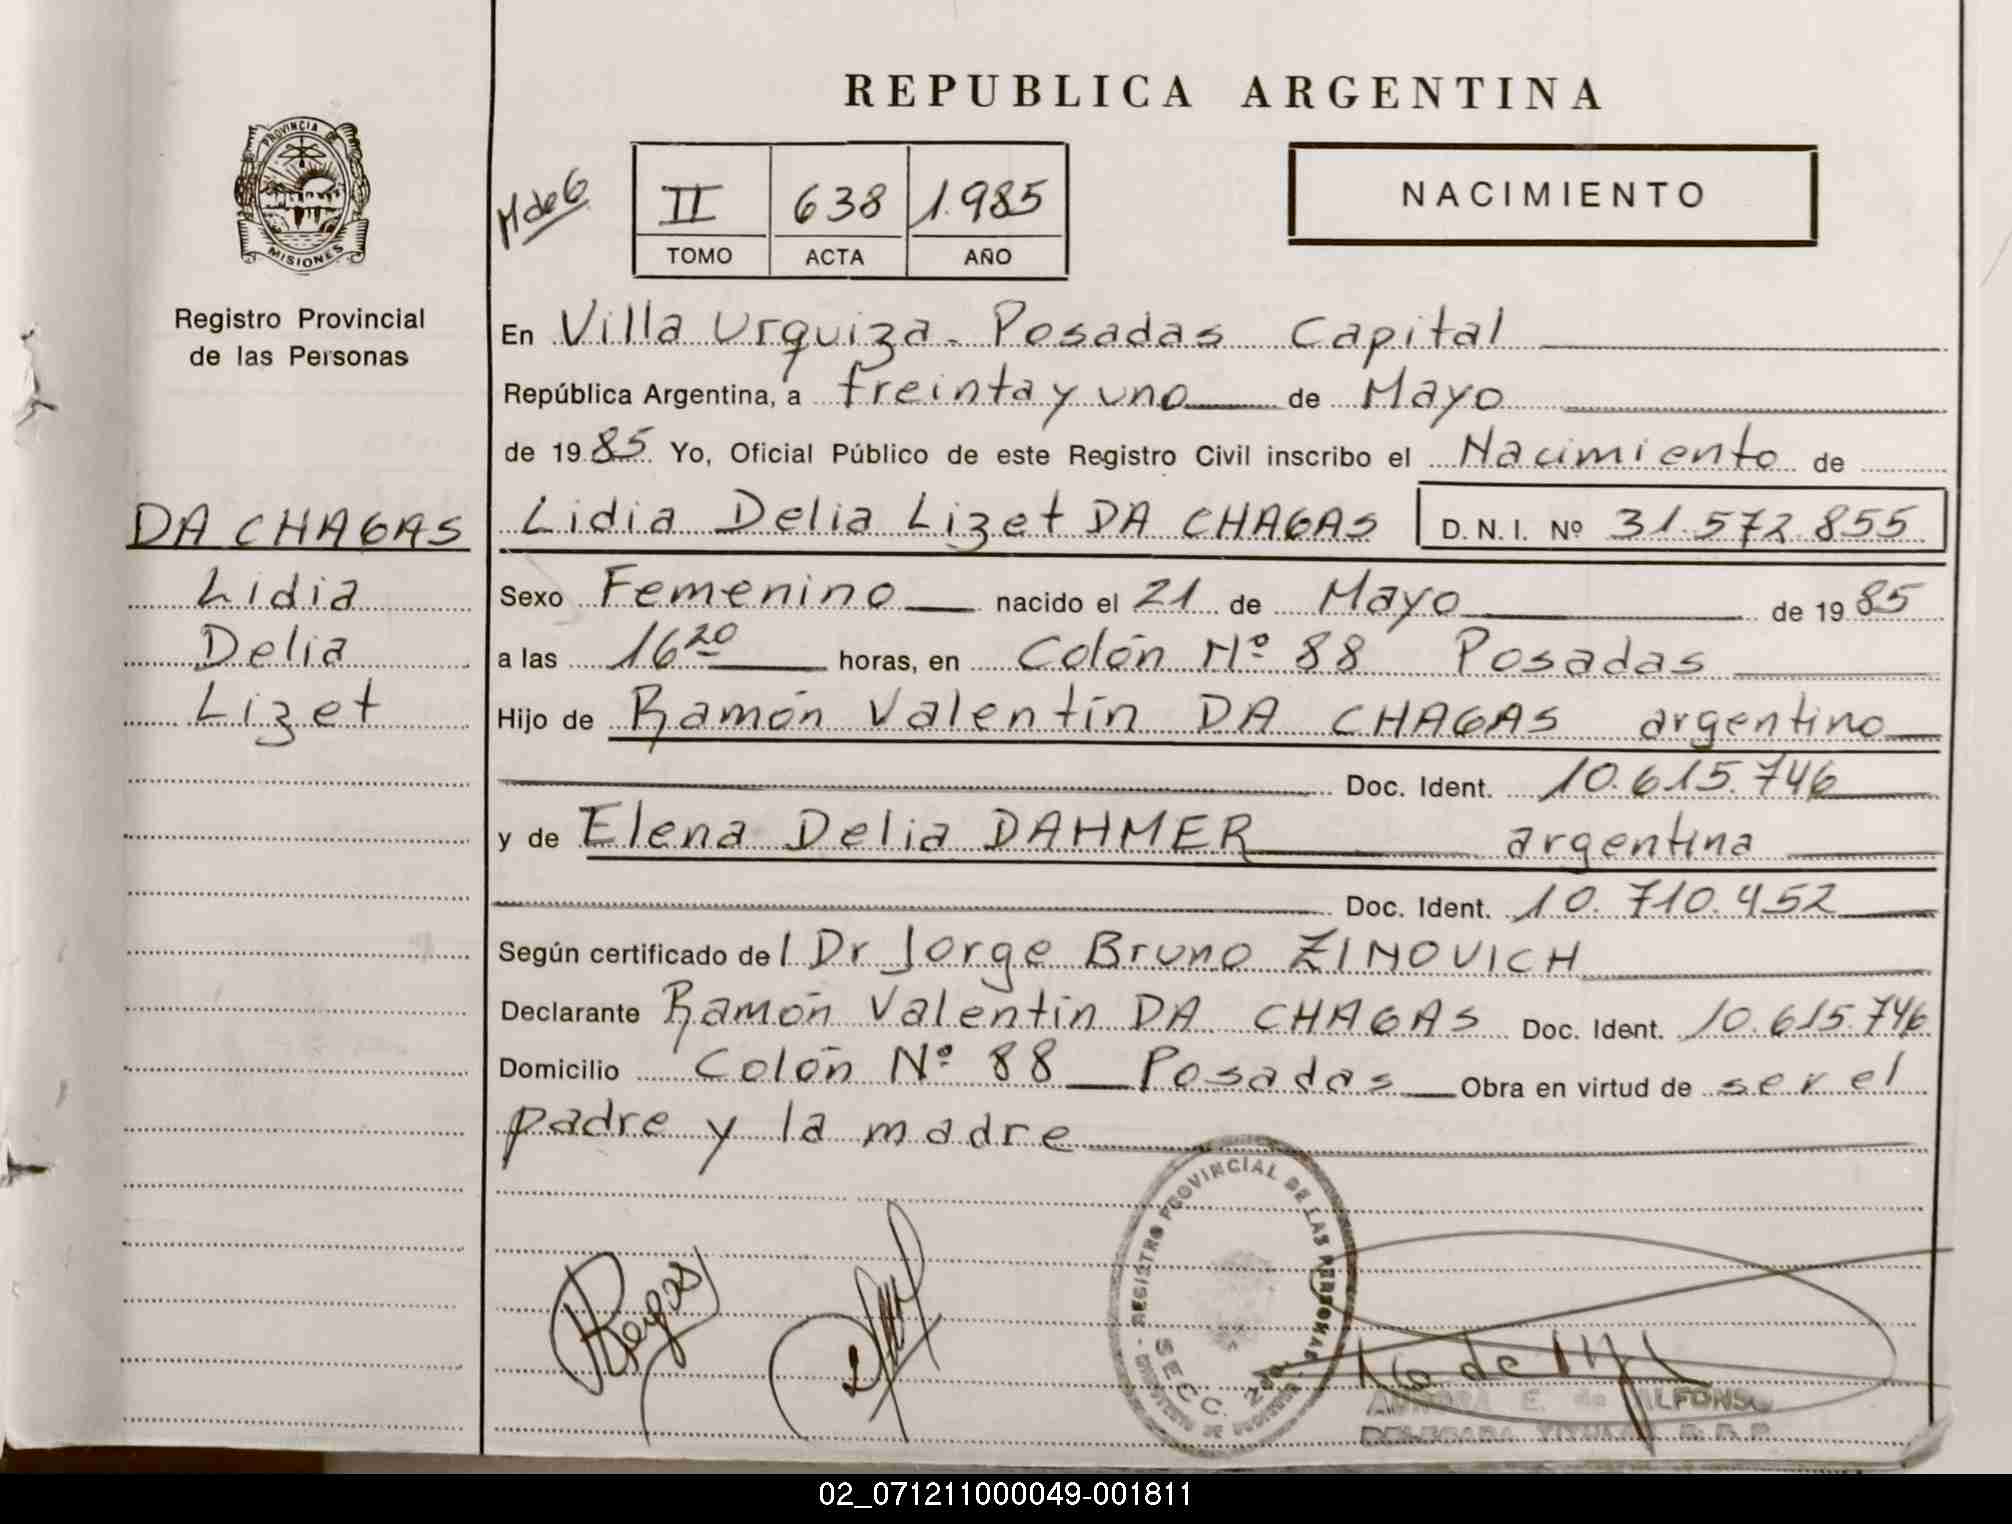 REPUBLICA ARGENTINA
PROVINCIA DE
MISIONES
Registro Provincial
de las Personas
M de G
II 638 1.985
TOMO ACTA AÑO
NACIMIENTO
En Villa Urquiza - Posadas Capital
República Argentina, a treinta y uno de Mayo
de 1985 Yo, Oficial Público de este Registro Civil inscribo el Nacimiento de
DA CHAGAS
Lidia
Delia
Lizet
Lidia Delia Lizet DA CHAGAS D. N. I. Nº 31.572.855
Sexo Femenino nacido el 21 de Mayo de 1985
a las 16 20 horas, en Colón Nº 88 Posadas
Hijo de Ramón Valentín DA CHAGAS argentino
Doc. Ident. 10.615.746
y de Elena Delia DAHMER argentina
Doc. Ident. 10.710.452
Según certificado del Dr Jorge Bruno ZINOVICH
Declarante Ramón Valentín DA CHAGAS Doc. Ident. 10.615.746
Domicilio Colón Nº 88 Posadas Obra en virtud de ser el
padre y la madre
REGISTRO PROVINCIAL DE LAS PERSONAS
SECC.
E. de ALFONSO
DELEGADA TITULAR R.P.P.
02_071211000049-001811